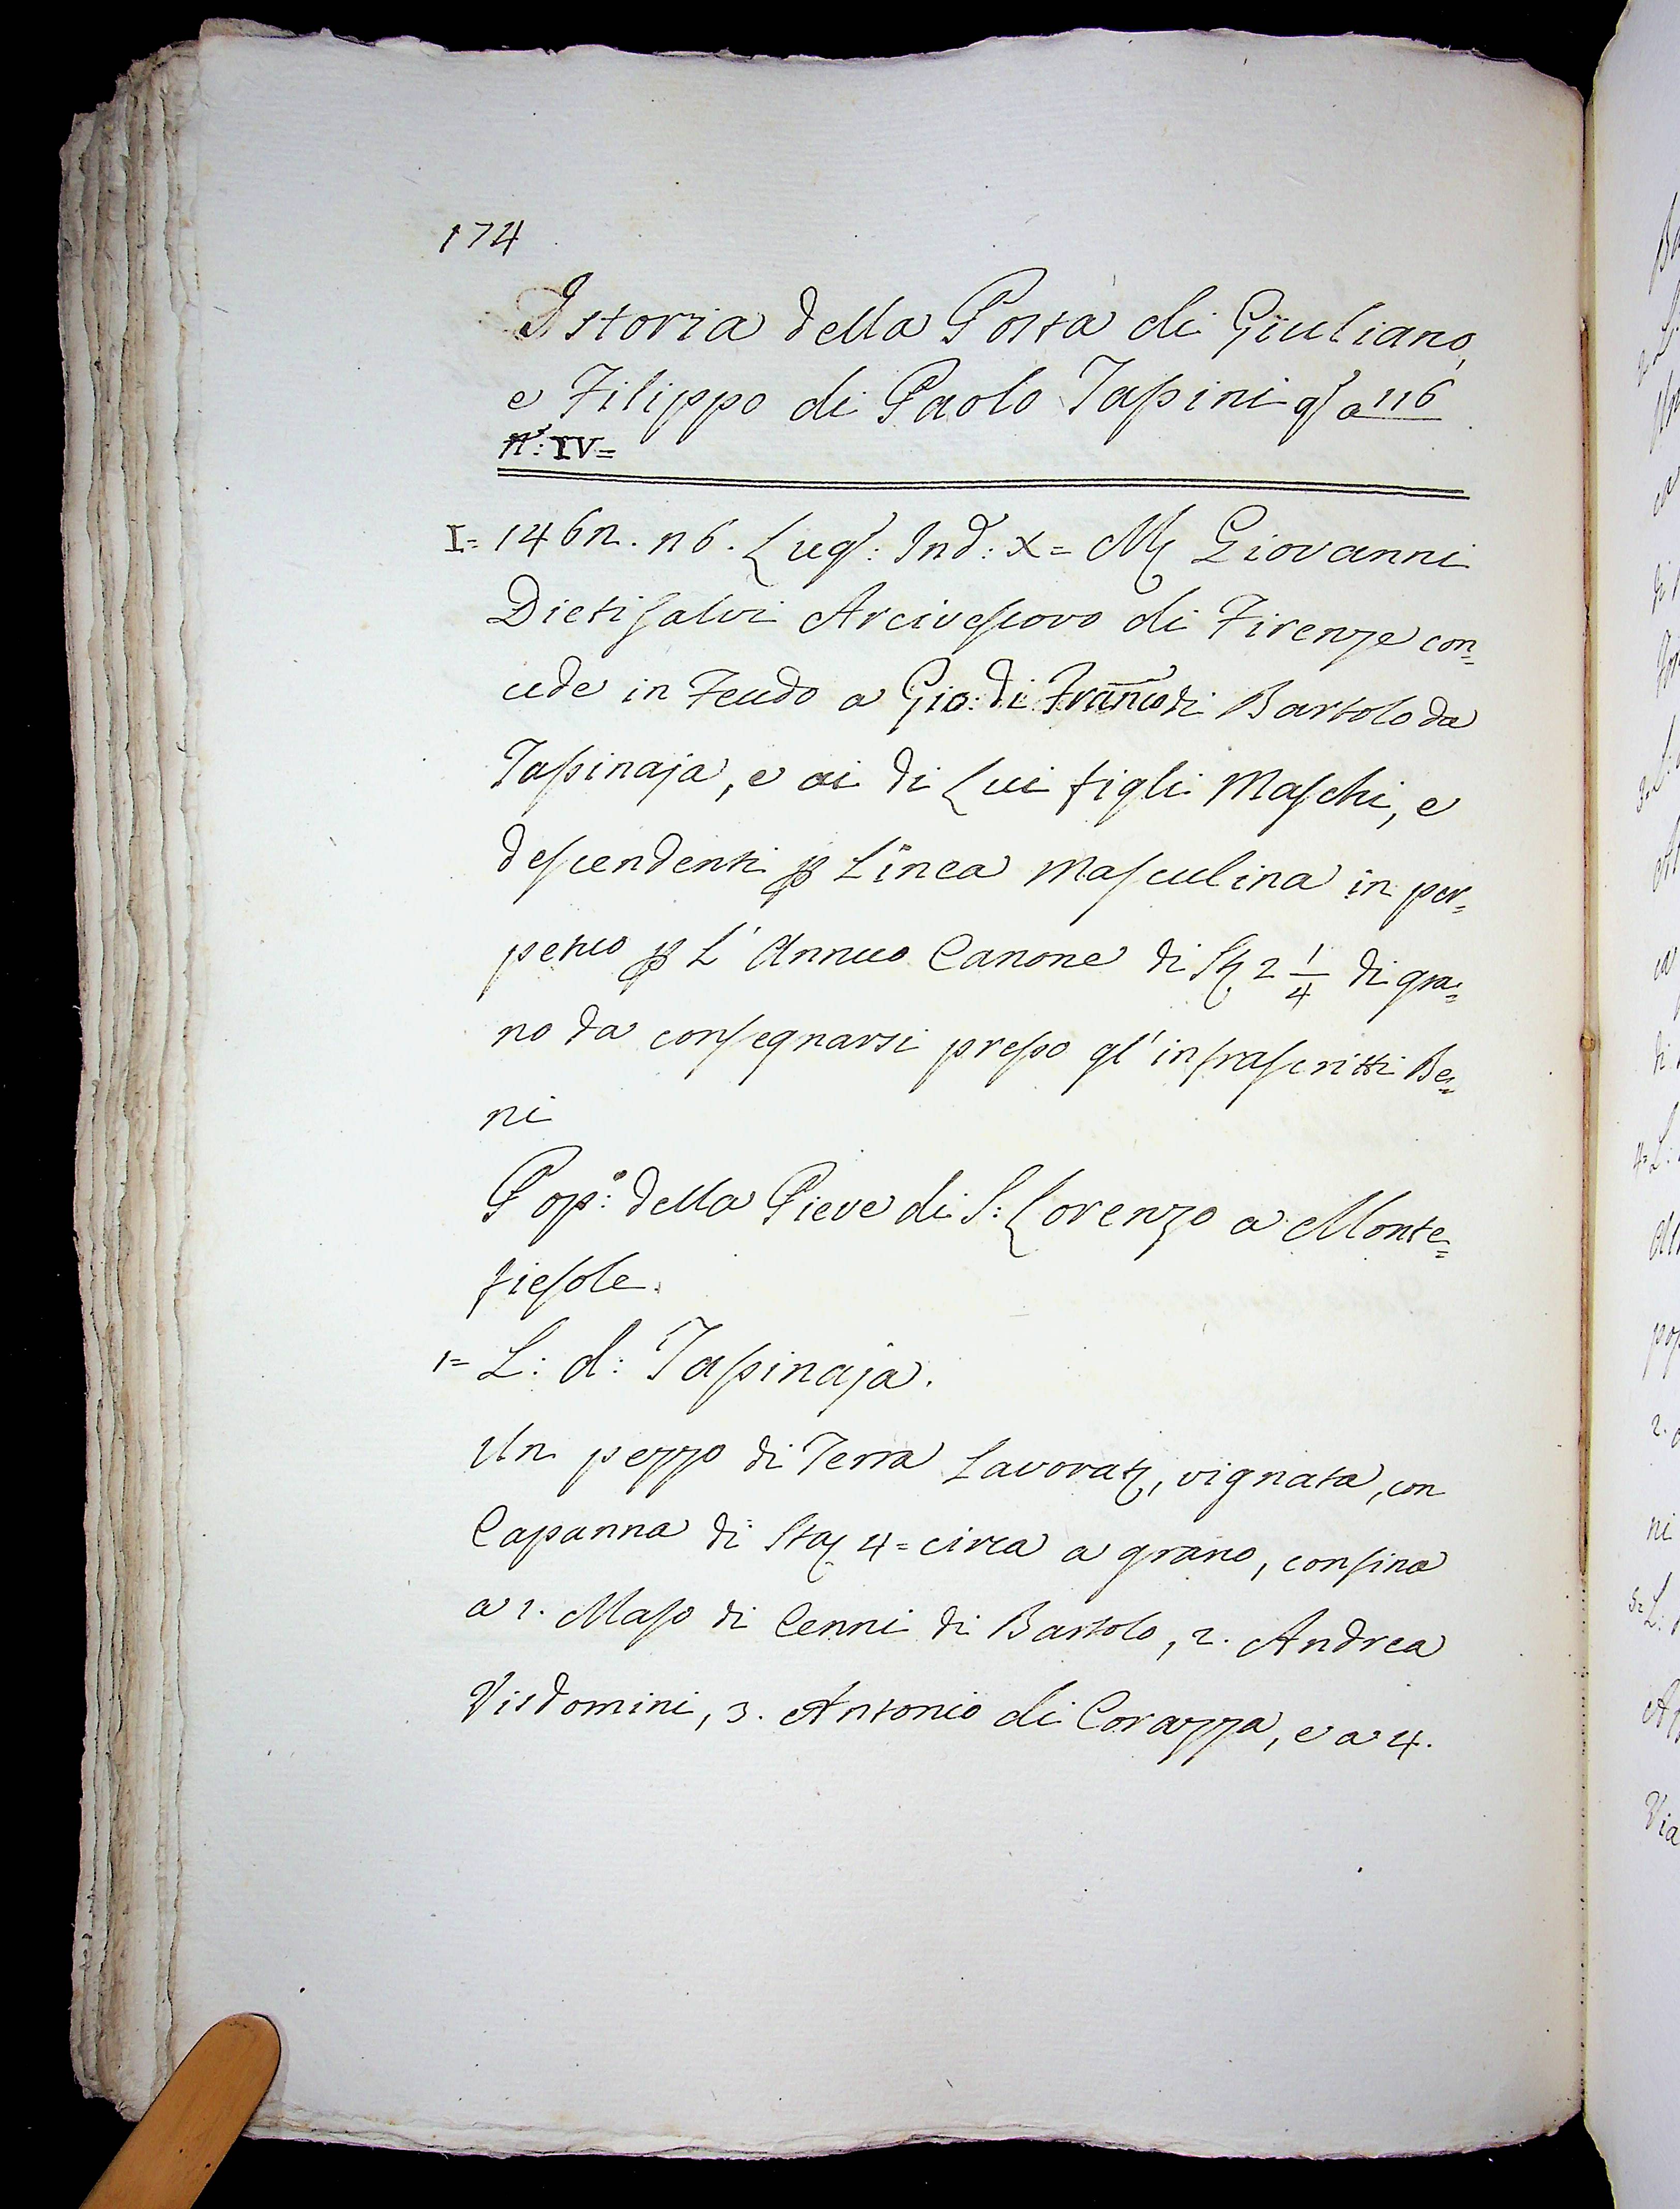 174
Istoria della Posta di Giuliano,
e Filippo di Paolo Tassini q.ta a 116
N.°: IV=
I= 1462. 26. Lug.: Ind: X= M. Giovanni
Dietisalvi Arcivescovo di Firenze con=
cede in Feudo a Gio: di Fran.co di Bartolo da
Tassinaja, e ai di Lui figli Maschi, e
descendenti p Linea Masculina in per=
petuo p L'Annuo Canone di St. 2 1/4 di gra=
no da consegnarsi presso gl'infrascritti Be=
ni
Pop.°: della Pieve di S: Lorenzo a Monte=
fiesole.
1= L: d: Tassinaja.
Un pezzo di Terra Lavorat., vignata, con
Capanna di Sta. 4= circa a grano, confina
a 1. Maso di Cenni di Bartolo, 2. Andrea
Visdomini, 3. Antonio di Corazza, e a 4.